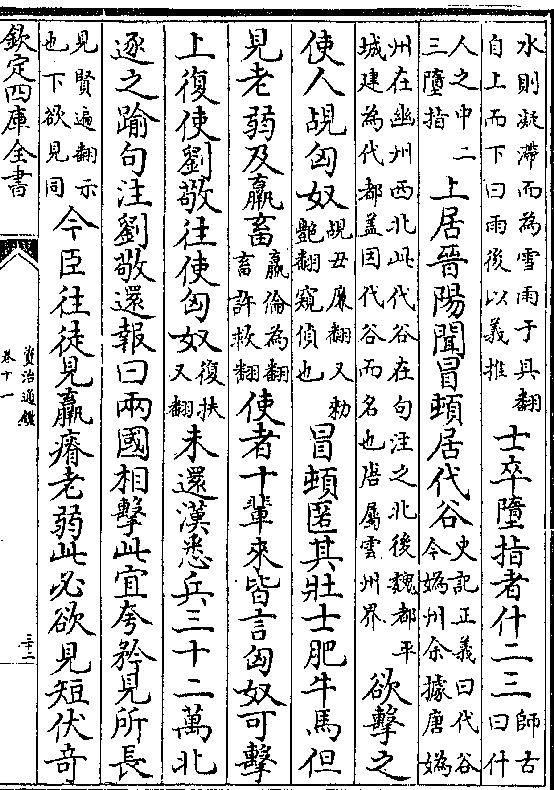 水則凝滯而為雪雨于具翻
自上而下曰雨後以義推
士卒墮指者什二三
師古
曰什
人之中二
三墮指
上居晉陽聞冒頓居代谷
史記正義曰代谷
今媯州余據唐媯
州在幽州西北此代谷在句注之北後魏都平
城建為代都蓋因代谷而名也唐屬雲州界
欲擊之
使人覘匈奴
覘丑廉翻又勑
艷翻窺偵也
冒頓匿其壯士肥牛馬但
見老弱及羸畜
羸倫為翻
畜許救翻
使者十輩來皆言匈奴可擊
上復使劉敬往使匈奴
復扶
又翻
未還漢悉兵三十二萬北
逐之踰句注劉敬還報曰兩國相擊此宜夸矜見所長
見賢遍翻示
也下欲見同
今臣往徒見羸瘠老弱此必欲見短伏奇
欽定四庫全書
資治通鑑
卷十一
三十二